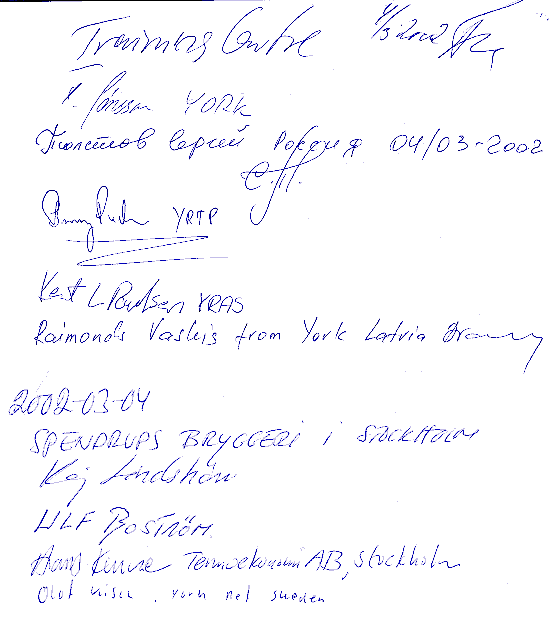 Training Centre 4/3 2002
YORK
Толстов Сергей Россия 04/03-2002
С.Т.
YRTP
Kent L Poulsen YRAS
Raimonds Vaskis from York Latvia
2002-03-04
SPENDRUPS BRYGGERI i STOCKHOLM
Kaj Lindström
ULF BOSTRÖM
Hans Termoekonomi AB, Stockholm
Olof York ref sweden